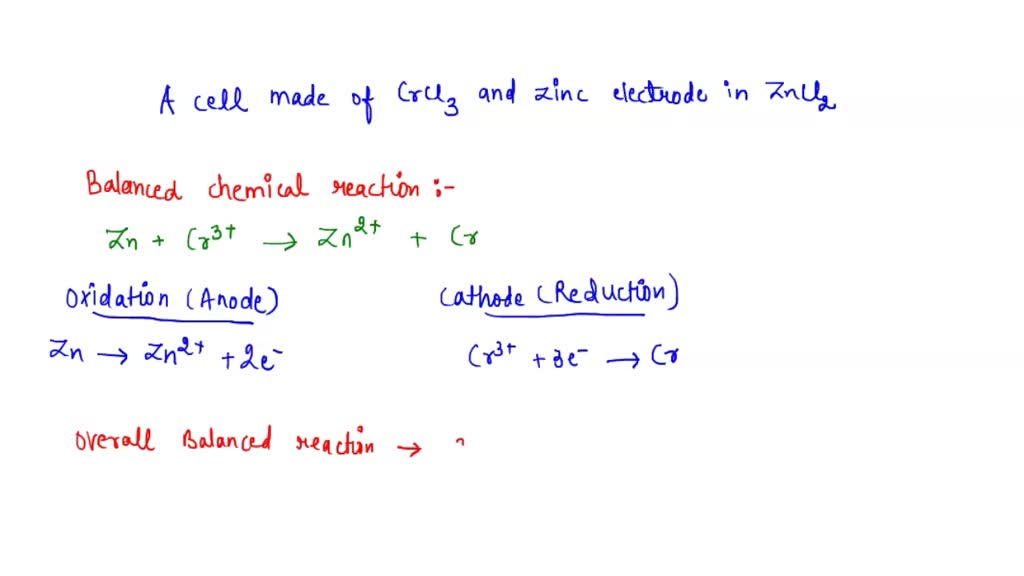 A cell made of CrCl₃ and zinc electrode in ZnCl₂
Balanced chemical reaction :-
Zn + Cr³⁺ → Zn²⁺ + Cr
Oxidation (Anode)
Cathode (Reduction)
Zn → Zn²⁺ + 2e⁻
Cr³⁺ + 3e⁻ → Cr
Overall Balanced reaction →